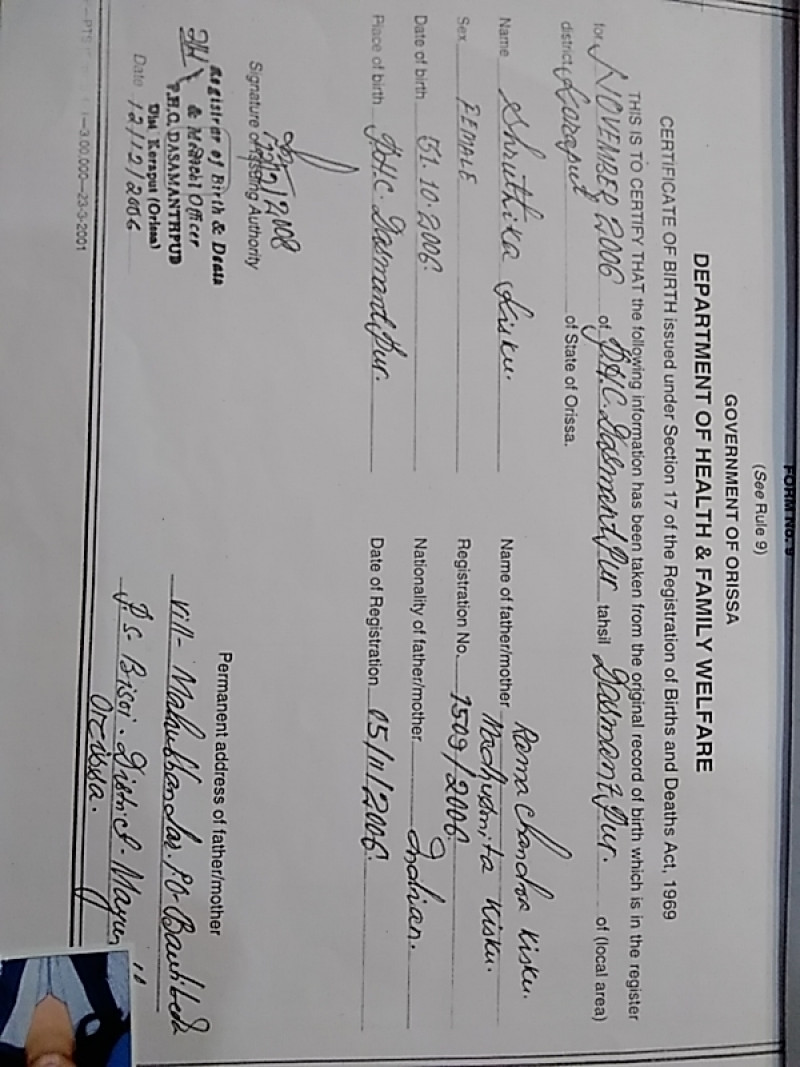 FORM No. 9
(See Rule 9)
GOVERNMENT OF ORISSA
DEPARTMENT OF HEALTH & FAMILY WELFARE
CERTIFICATE OF BIRTH issued under Section 17 of the Registration of Births and Deaths Act, 1969
THIS IS TO CERTIFY THAT the following information has been taken from the original record of birth which is in the register
for NOVEMBER 2006 of P.H.C. Dasmantpur tahsil Dasmantpur. of (local area)
district Koraput of State of Orissa.
Name Shruthika Kisku.
Sex FEMALE
Date of birth 31.10.2006.
Place of birth P.H.C. Dasmantpur.
Name of father/mother Rama Chandra Kisku.
Madhusmita Kisku.
Registration No. 1509/2006.
Nationality of father/mother Indian.
Date of Registration 05/11/2006.
Signature of Issuing Authority
Registrar of Birth & Death
& Medical Officer
P.H.C. DASAMANTHPUD
Dist Koraput (Orissa)
Date 12/12/2006
Permanent address of father/mother
Vill- PO-
P.S- Bisoi. District-
Orissa.
3,00,000—23-3-2001